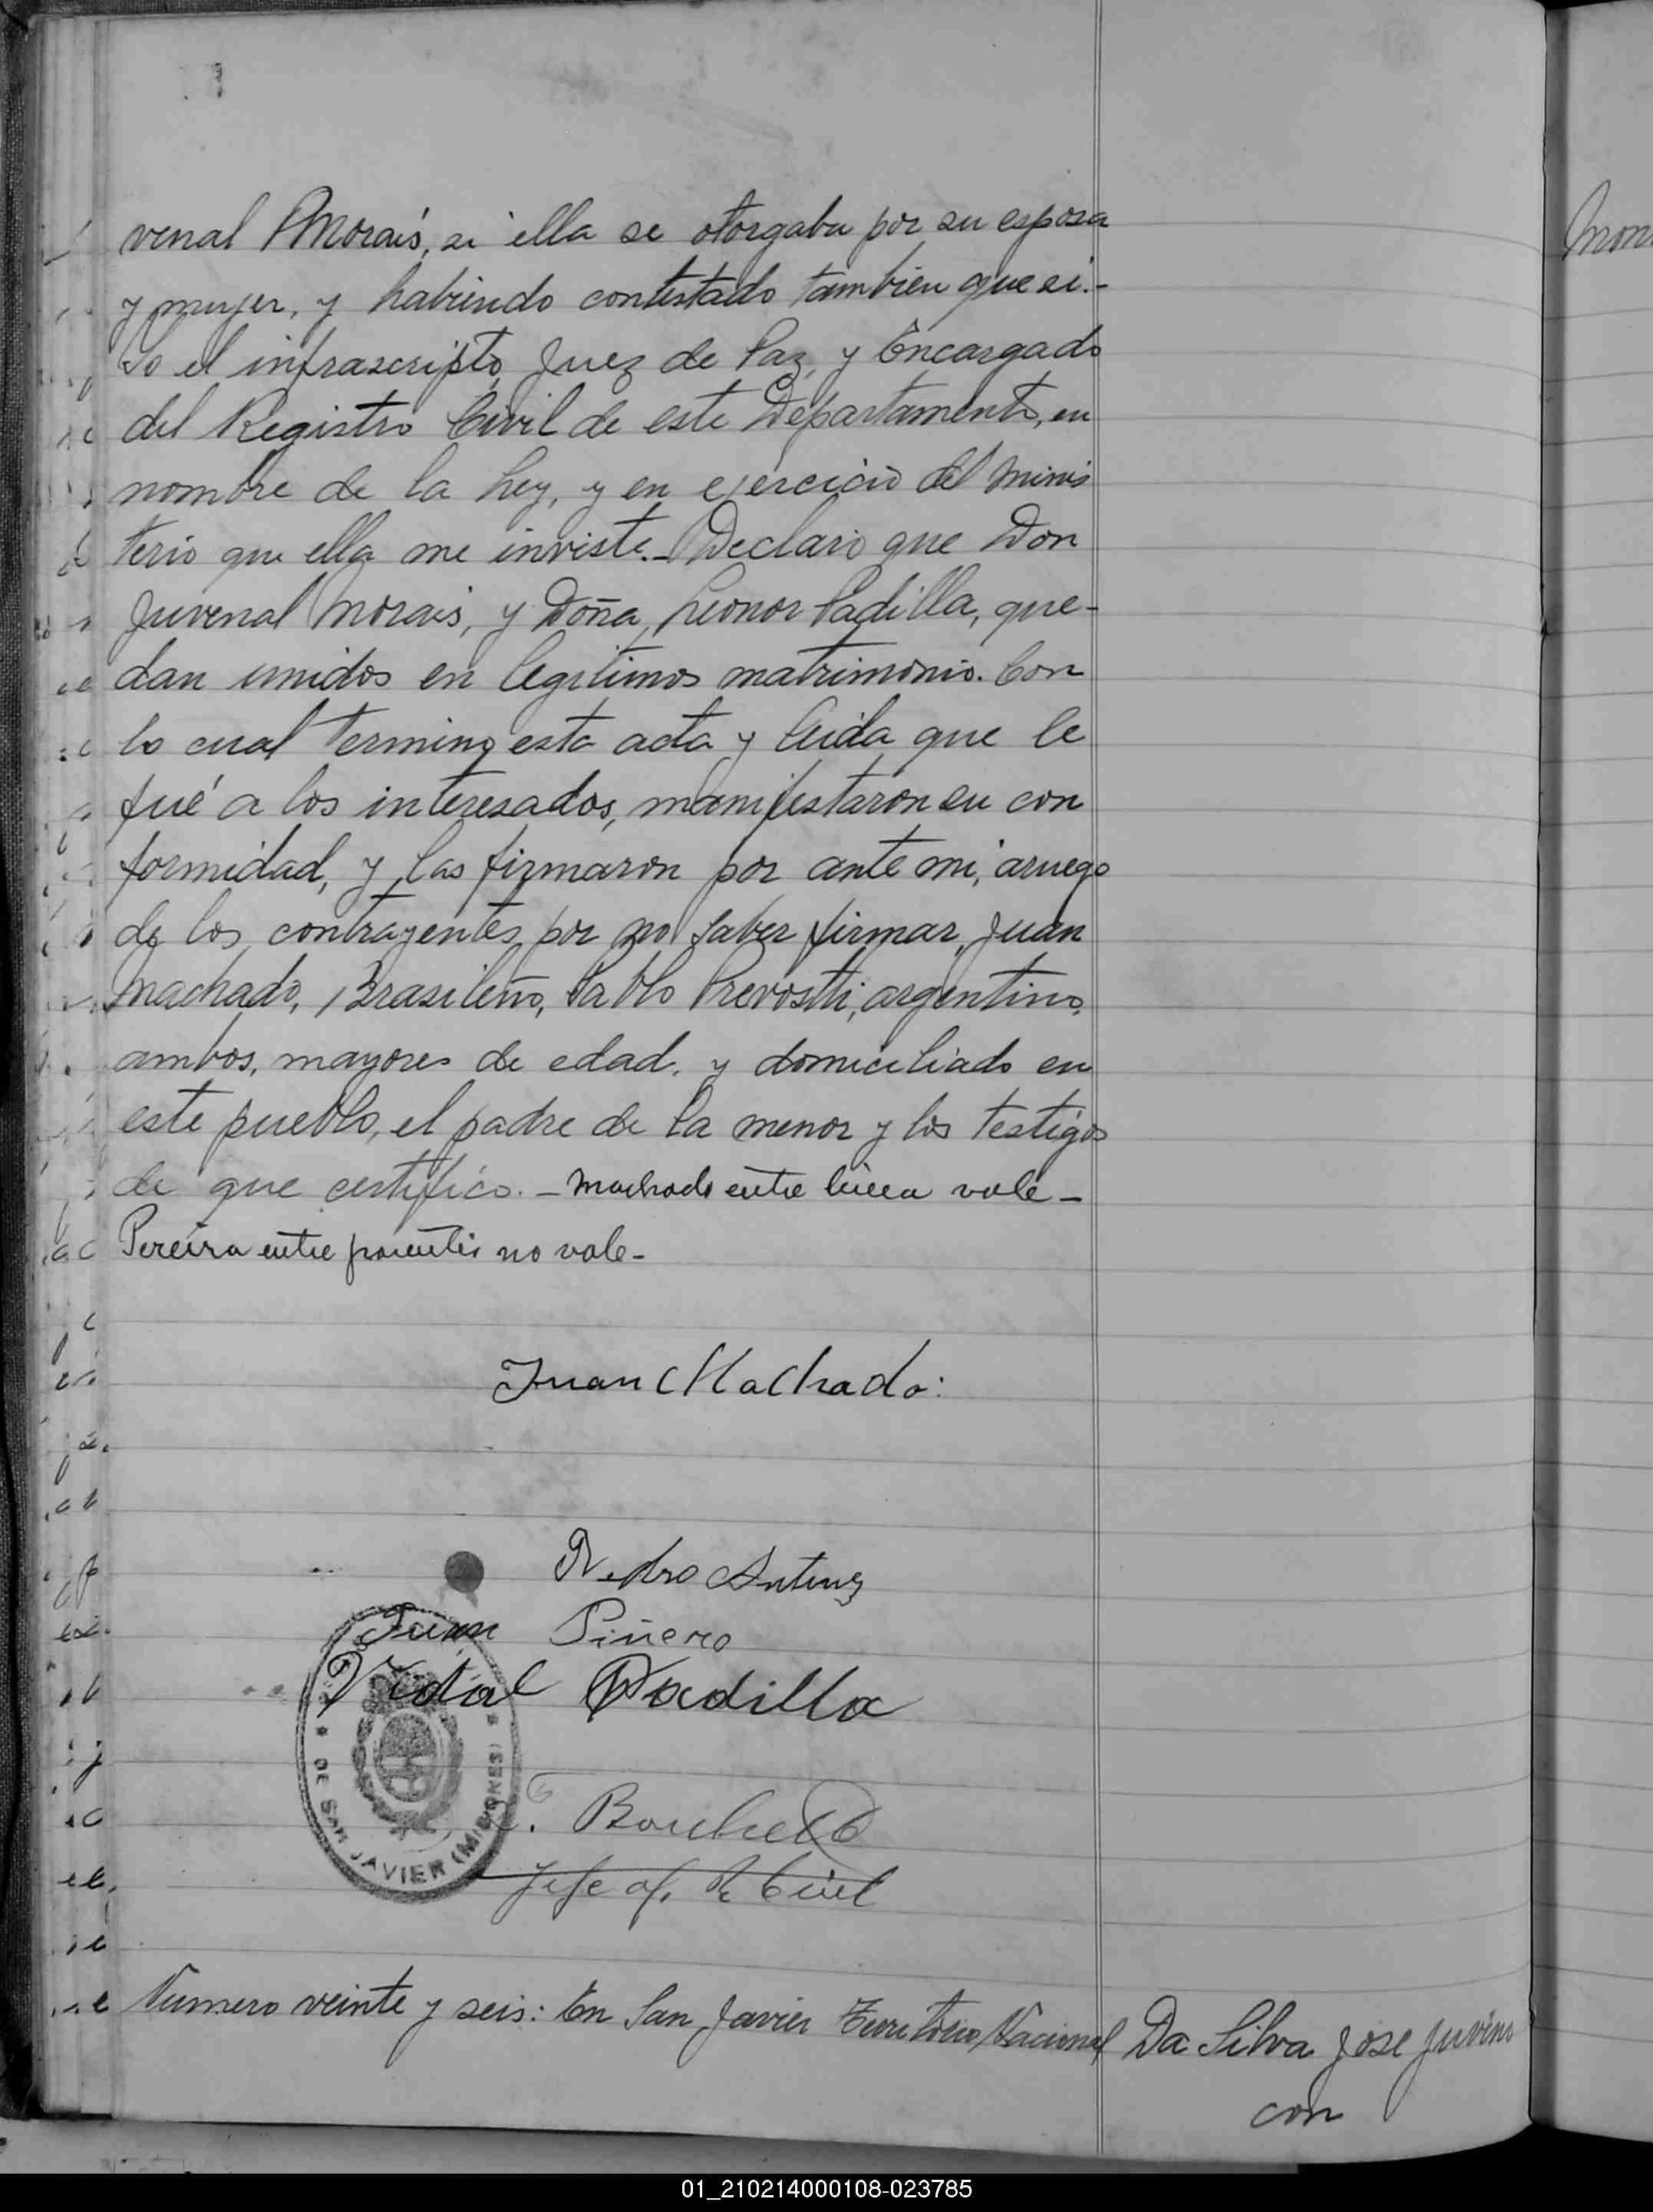 venal Morais, si ella se otorgaba por su esposa
y mujer, y habiendo contestado tambien que si.-
Yo el infrascripto Juez de Paz, y Encargado
del Registro Civil de este Departamento, en
nombre de la Ley, y en ejercicio del minis
terio que ella me inviste.- Declaro que Don
Juvenal Morais, y Doña, Leonor Padilla, que-
dan unidos en legitimos matrimonio. Con
lo cual termino esta acta y leida que le
fué a los interesados, manifestaron su con
formidad, y las firmaron por ante mi, aruego
de los contrayentes por no saber firmar, Juan
Machado, Brasileño, Pablo Prevosti, argentino,
ambos, mayores de edad, y domiciliado en
este pueblo, el padre de la menor y los testigos
de que certifico. - Machado entre linea vale -
Pereira entre parentis no vale -
Juan Machado:
Pedro Antunez
Juan Piñero
Vidal Padilla
Jefe of. R. Civil
DE SAN JAVIER (MISIONES)
Numero veinte y seis: En San Javier Territorio Nacional
Da Silva Jose Juvino
con
Mora
01_210214000108-023785